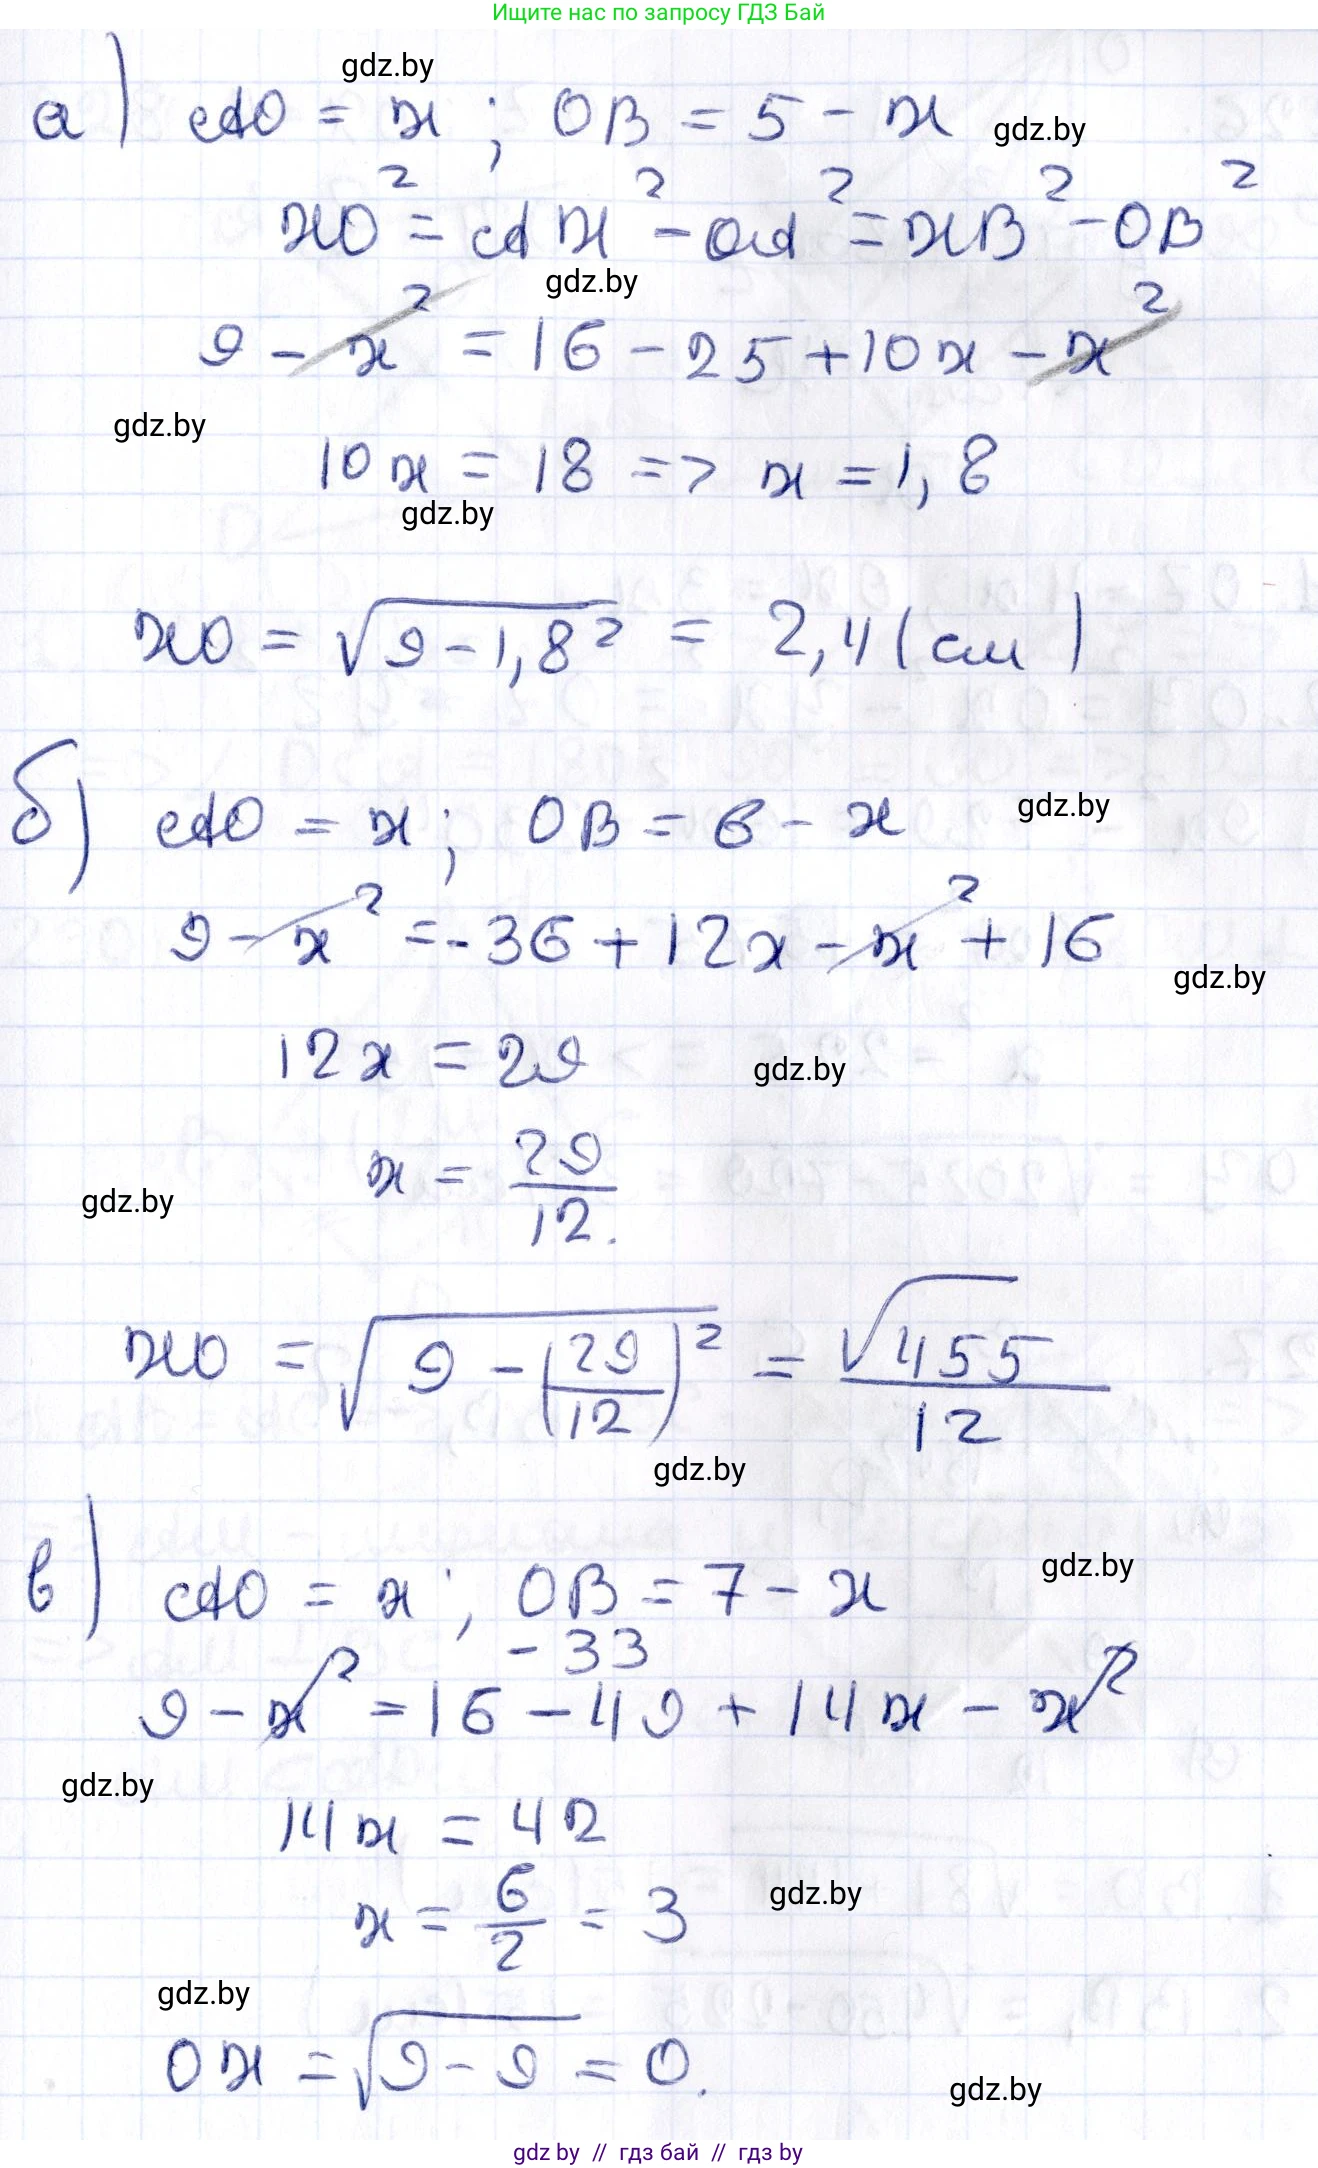 Ищите нас по запросу ГДЗ Бай
gdz.by
а) AO = x ; OB = 5 - x
gdz.by
XO² = AX² - OA² = XB² - OB²
gdz.by
9 - x² = 16 - 25 + 10x - x²
gdz.by
10x = 18 => x = 1,8
gdz.by
XO = √(9 - 1,8²) = 2,4 (см)
б) AO = x ; OB = 6 - x
gdz.by
9 - x² = -36 + 12x - x² + 16
gdz.by
12x = 29
gdz.by
x = 29/12.
gdz.by
XO = √(9 - (29/12)²) = √455/12
gdz.by
в) AO = x ; OB = 7 - x
gdz.by
-33
9 - x² = 16 - 49 + 14x - x²
gdz.by
14x = 42
x = 6/2 = 3
gdz.by
gdz.by
OX = √(9 - 9) = 0.
gdz.by
gdz by // гдз бай // гдз by